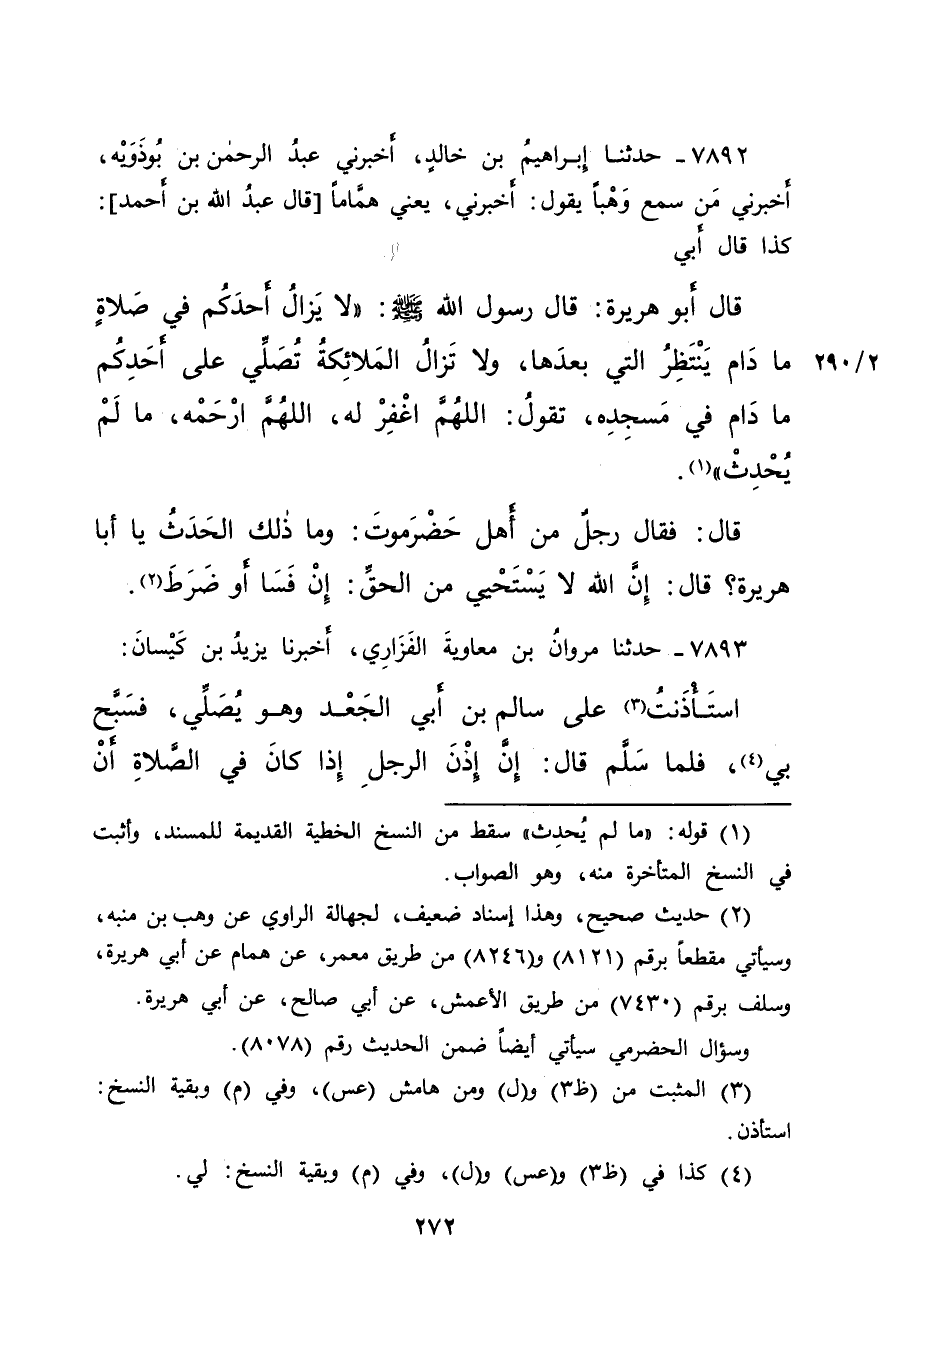 ٧٨٩٢ـ حدثنـا إبـراهيمُ بن خالدٍ، أَخبرني عبدُ الرحمٰن بن بُوذَوَيْه،
أَخبرني مَن سمع وَهْباً يقول: أَخبرني، يعني همَّاماً [قال عبدُ الله بن أَحمد]:
كذا قال أَبي
قال أَبو هريرة: قال رسول الله ﷺ: «لا يَزالُ أَحدَكُم في صَلاةٍ
ما دَام يَنْتَظِرُ التي بعدَها، ولا تَزالُ المَلائِكةُ تُصَلِّي على أَحَدِكُم ٢٩٠/٢
ما دَام في مَسجِدِه، تقولُ: اللهُمَّ اغْفِرْ له، اللهُمَّ ارْحَمْه، ما لَمْ
يُحْدِثْ»(١).
قال: فقال رجلٌ من أَهل حَضْرَموتَ: وما ذٰلك الحَدَثُ يا أَبا
هريرة؟ قال: إِنَّ الله لا يَسْتَحْيي من الحقِّ: إِنْ فَسَا أَو ضَرَطَ(٢).
٧٨٩٣ـ حدثنا مروانُ بن معاويةَ الفَزَاري، أَخبرنا يزيدُ بن كَيْسانَ:
استَـأْذَنتُ(٣) على سالم بن أَبي الجَعْـد وهـو يُصَلِّي، فسَبَّح
بي(٤)، فلما سَلَّم قال: إِنَّ إِذْنَ الرجلِ إِذا كانَ في الصَّلاةِ أَنْ
(١) قوله: «ما لم يُحدِث» سقط من النسخ الخطية القديمة للمسند، وأثبت
في النسخ المتأخرة منه، وهو الصواب.
(٢) حديث صحيح، وهذا إسناد ضعيف، لجهالة الراوي عن وهب بن منبه،
وسيأتي مقطعاً برقم (٨١٢١) و(٨٢٤٦) من طريق معمر، عن همام عن أبي هريرة،
وسلف برقم (٧٤٣٠) من طريق الأعمش، عن أبي صالح، عن أبي هريرة.
وسؤال الحضرمي سيأتي أيضاً ضمن الحديث رقم (٨٠٧٨).
(٣) المثبت من (ظ٣) و(ل) ومن هامش (عس)، وفي (م) وبقية النسخ:
استأذن.
(٤) كذا في (ظ٣) و(عس) و(ل)، وفي (م) وبقية النسخ: لي.
٢٧٢